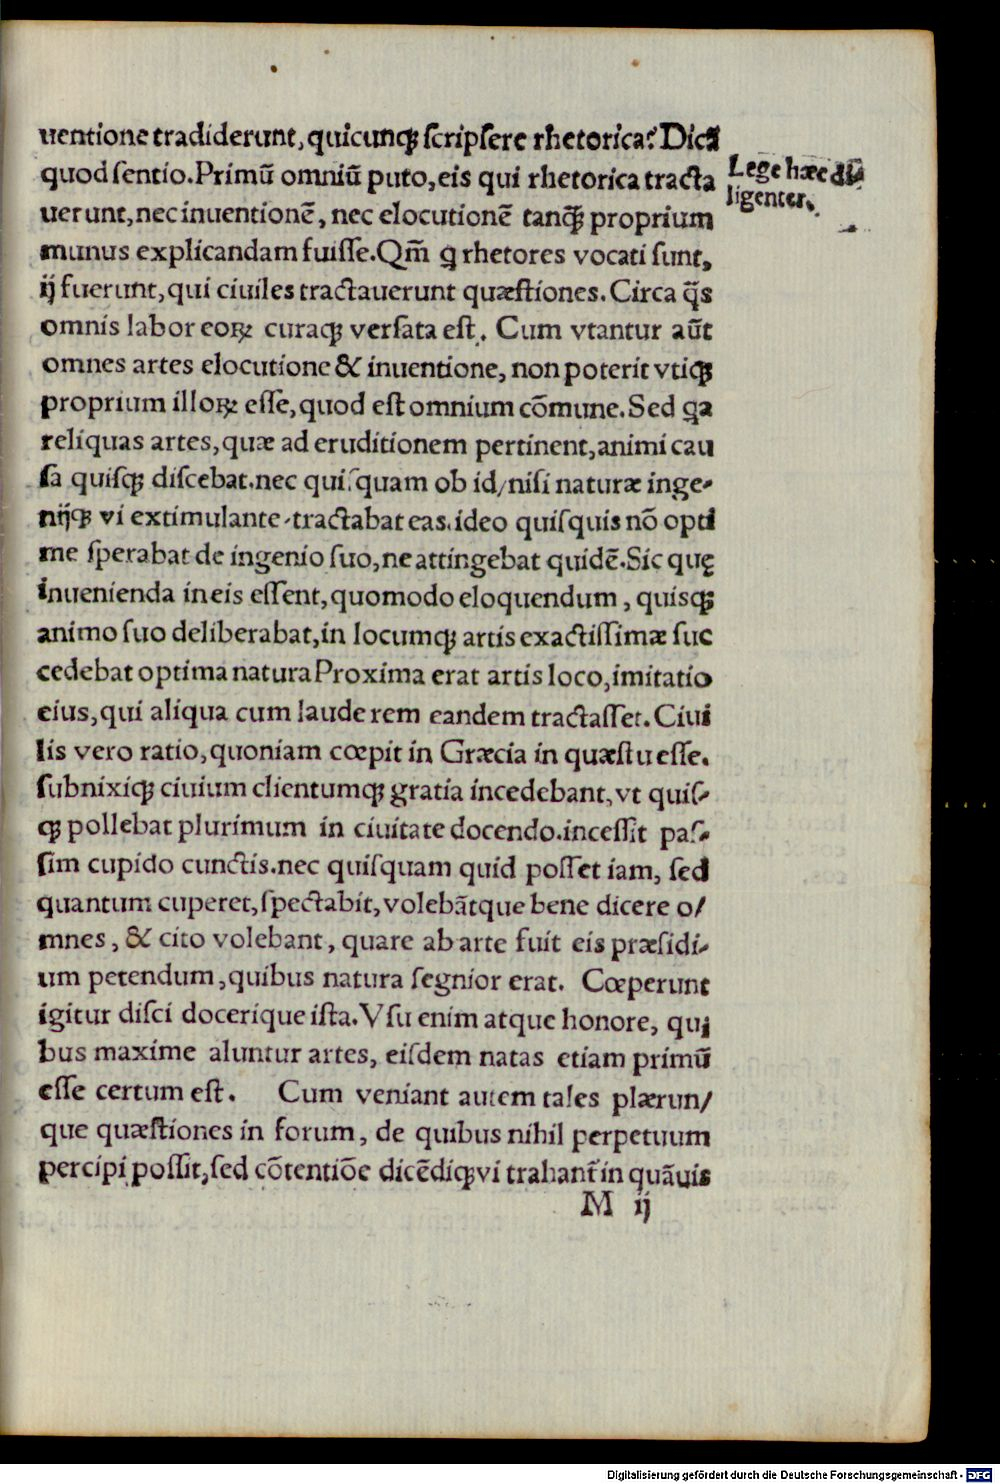 uentione tradiderunt, quicunqꝫ scripsere rhetorica? Dicā
quod sentio. Primū omniū puto, eis qui rhetorica tracta
uerunt, nec inuentionē, nec elocutionē tanq̄ꝫ proprium
munus explicandam fuisse. Qm̄ q rhetores vocati sunt,
ij fuerunt, qui ciuiles tractauerunt quæstiones. Circa q̄s
omnis labor eoꝝ curaqꝫ versata est. Cum vtantur aūt
omnes artes elocutione & inuentione, non poterit vtiqꝫ
proprium illoꝝ esse, quod est omnium cōmune. Sed qa
reliquas artes, quæ ad eruditionem pertinent, animi cau
sa quisqꝫ discebat. nec quisquam ob id/nisi naturæ inge-
nijqꝫ vi extimulante-tractabat eas. ideo quisquis nō opti
me sperabat de ingenio suo, ne attingebat quidē. Sic quę
inuenienda in eis essent, quomodo eloquendum, quisqꝫ
animo suo deliberabat, in locumqꝫ artis exactissimæ suc
cedebat optima natura Proxima erat artis loco, imitatio
eius, qui aliqua cum laude rem eandem tractasset. Ciui
lis vero ratio, quoniam cœpit in Græcia in quæstu esse.
subnixiqꝫ ciuium clientumqꝫ gratia incedebant, vt quis-
qꝫ pollebat plurimum in ciuitate docendo. incessit pas-
sim cupido cunctis. nec quisquam quid posset iam, sed
quantum cuperet, spectabit, volebātque bene dicere o/
mnes, & cito volebant, quare ab arte fuit eis præsidi-
um petendum, quibus natura segnior erat. Cœperunt
igitur disci docerique ista. Vsu enim atque honore, qui
bus maxime aluntur artes, eisdem natas etiam primū
esse certum est. Cum veniant autem tales plærun/
que quæstiones in forum, de quibus nihil perpetuum
percipi possit, sed cōtentiōe dicēdiqꝫ vi trahant᷑ in quāuis
M ij
Lege hæc di
ligenter.
Digitalisierung gefördert durch die Deutsche Forschungsgemeinschaft - DFG